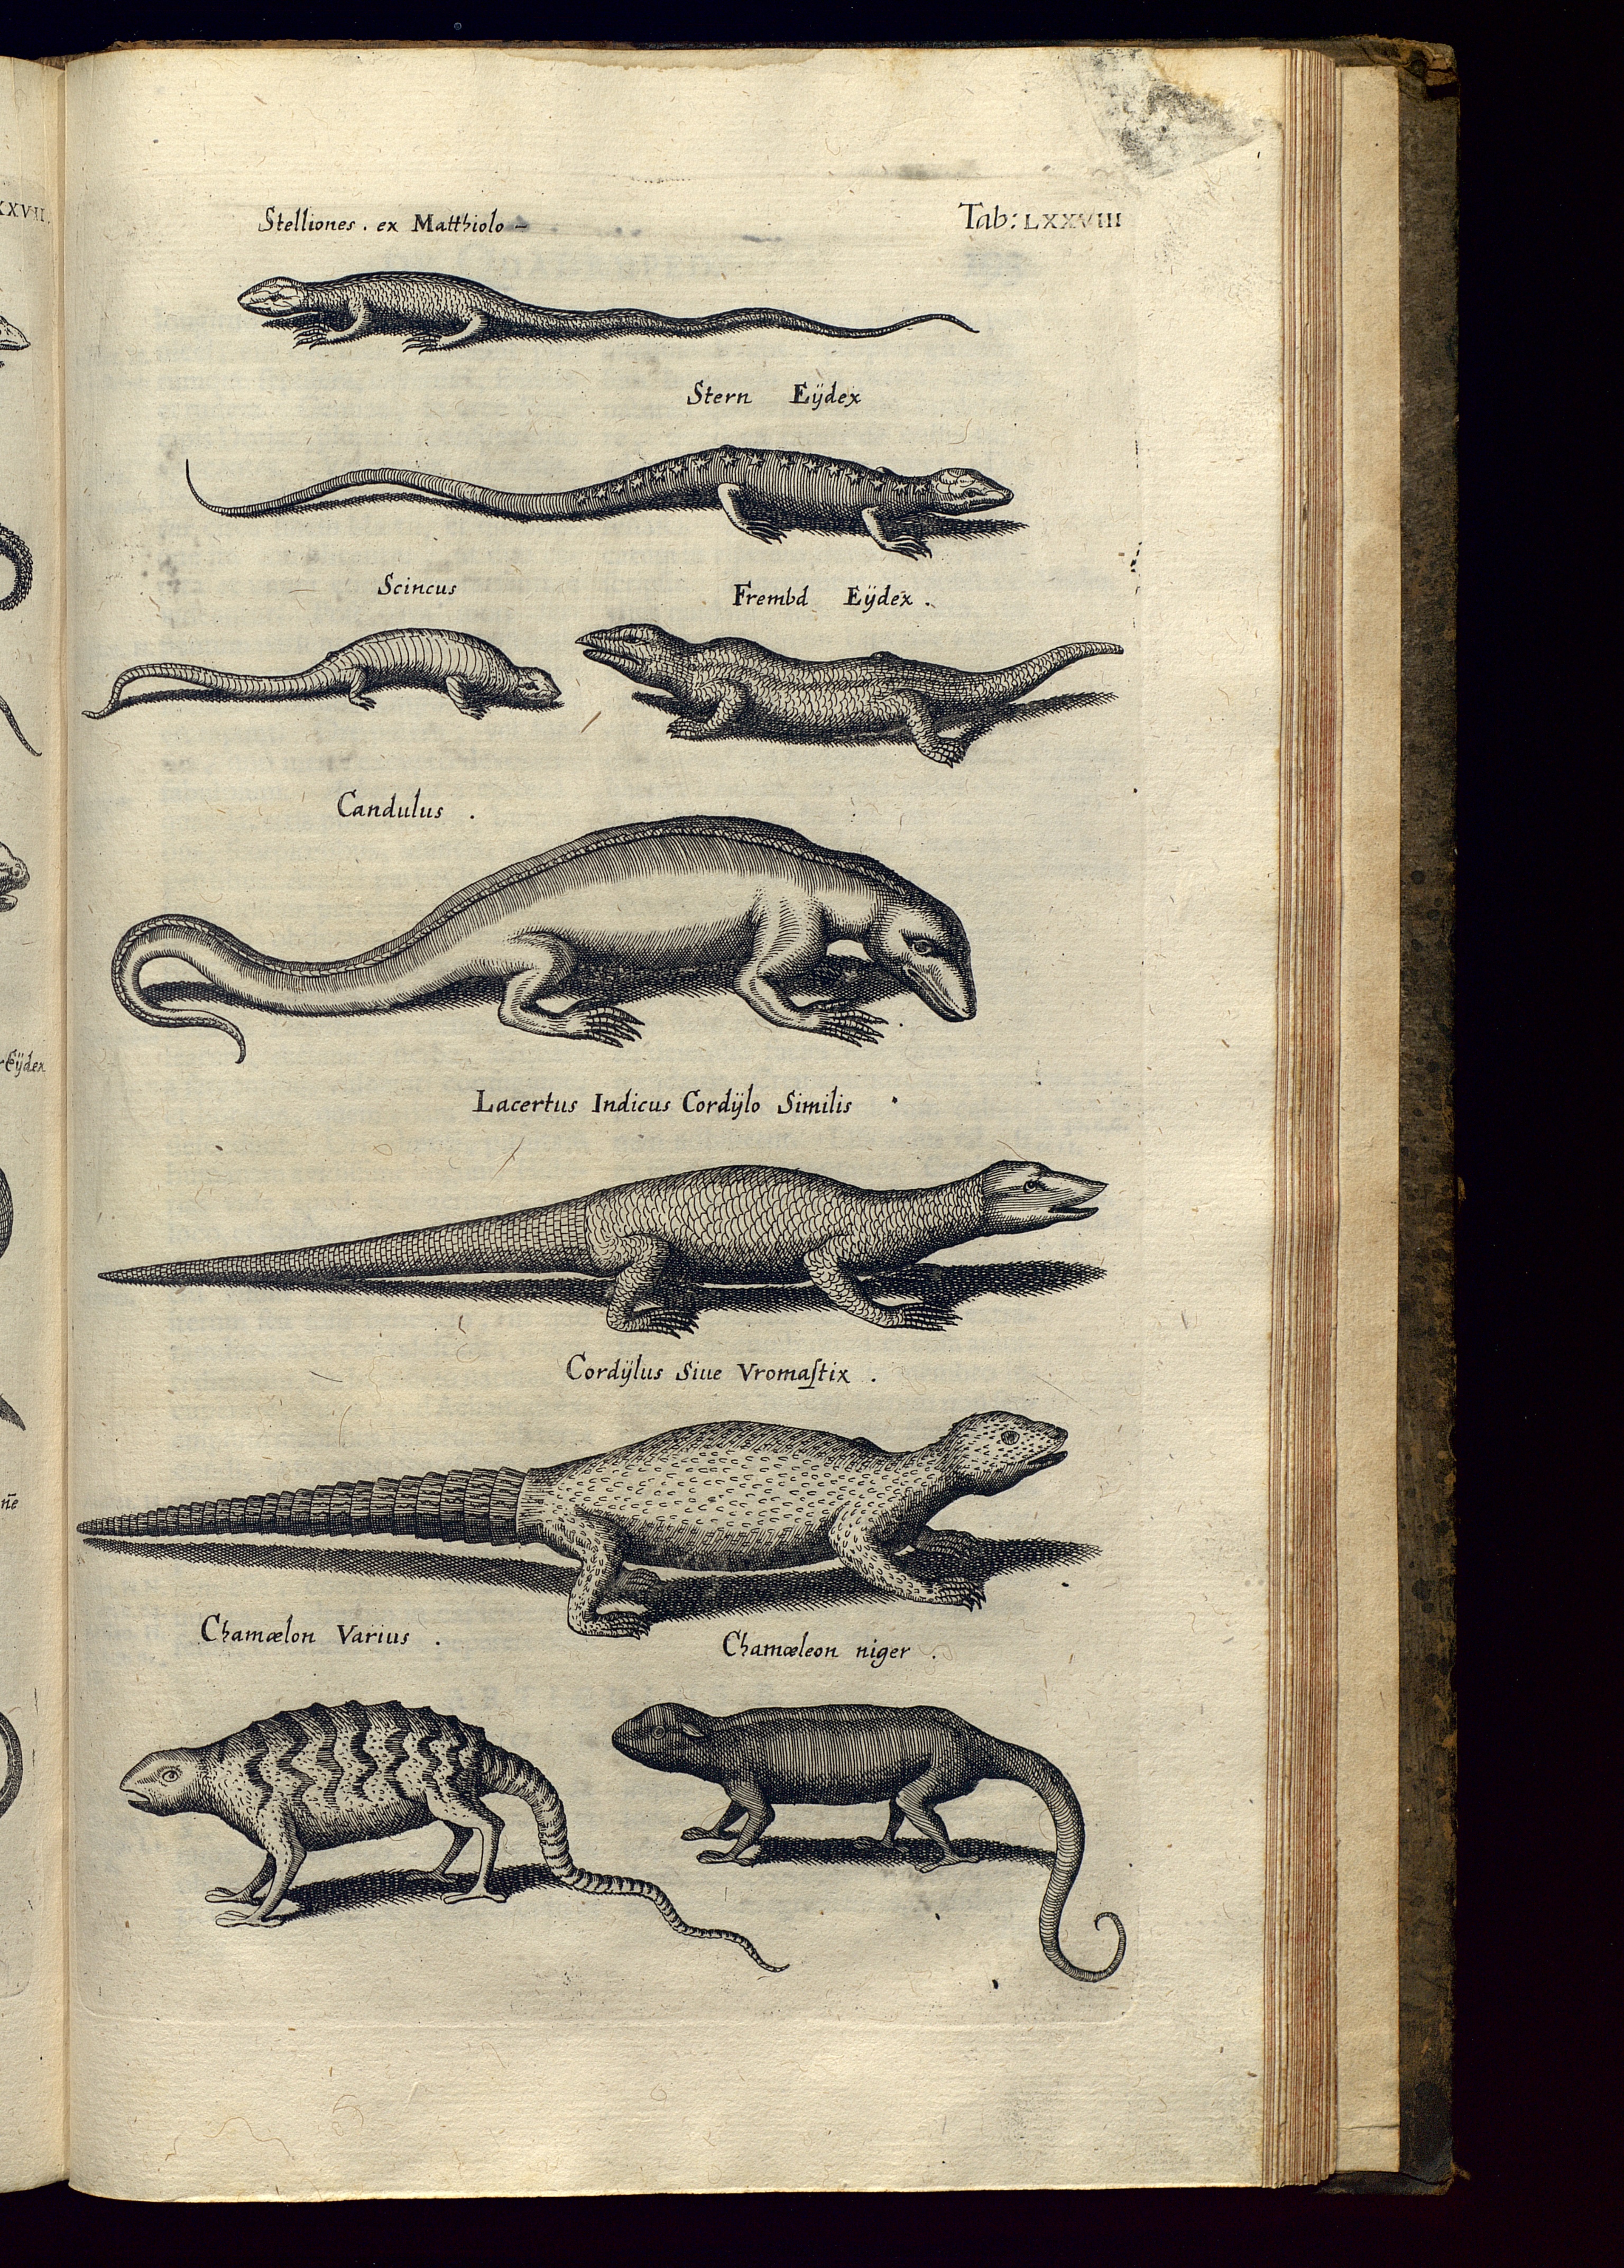 XXVII.
Stelliones . ex Matthiolo –
Tab: LXXVIII
Stern Eÿdex
Scincus
Frembd Eÿdex .
Candulus .
Eÿdex
Lacertus Indicus Cordÿlo Similis .
Cordÿlus Siue Vromaſtix .
nē
Chamælon Varius .
Chamæleon niger .